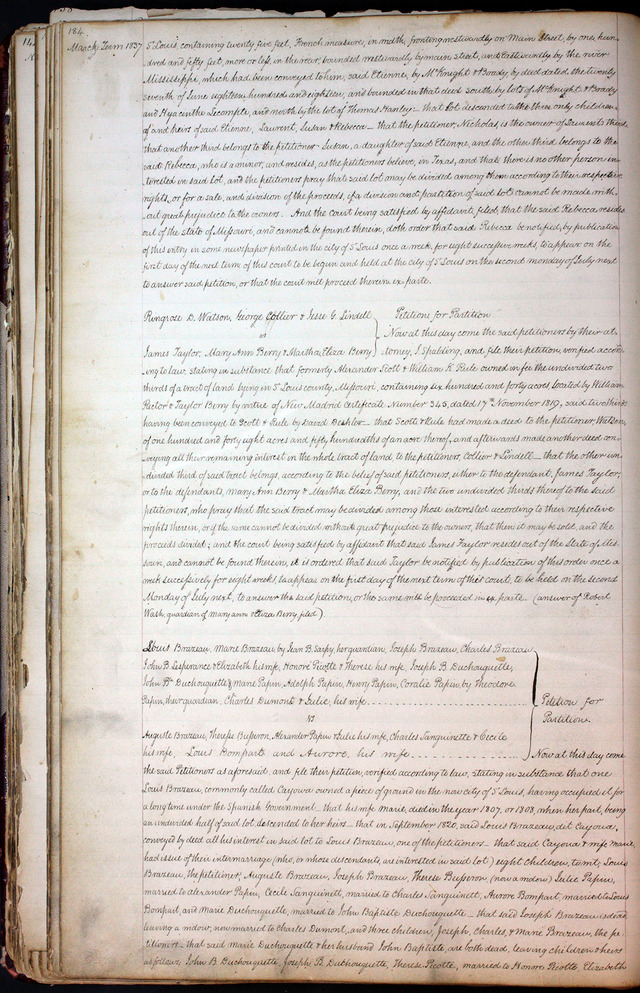 184.
March Term 1837
St Louis, containing twenty five feet, French measure, in width, fronting westwardly on Main Street, by one hun-
dred and fifty feet, more or less, in the rear, bounded westwardly by main street, and Eastwardly by the river
Mississippi, which had been conveyed to him, said Etienne, by McKnight & Brady, by deed dated the twenty
seventh of June eighteen hundred and eighteen, and bounded in that deed south by lots of McKnight & Brady
and Hyacinthe Lecompte, and north by the lot of Thomas Hanley – that lot descended to the three only children
of and heirs of said Etienne, Laurent, Susan & Rebecca – that the petitioner, Nicholas, is the owner of Laurent's third
that another third belongs to the petitioner Susan, a daughter of said Etienne, and the other third belongs to the
said Rebecca, who is a minor, and resides, as the petitioners believe, in Texas, and that there is no other person in-
terested in said lot, and the petitioners pray that said lot may be divided among them according to their respective
rights, or for a sale, and division of the proceeds, if a division and partition of said lot cannot be made with-
out great prejudice to the owners. And the court being satisfied by affidavit, filed, that the said Rebecca resides
out of the state of Missouri, and cannot be found therein, doth order that said Rebecca be notified, by publication
of this entry in some newspaper printed in the city of St Louis once a week, for eight successive weeks, to appear on the
first day of the next term of this court to be begun and held at the city of St Louis on the second monday of July next
to answer said petition, or that the court will proceed therein ex parte.
Ringrose D. Watson, George Collier & Jesse G. Lindell
vs
Petition for Partition
Now at this day come the said petitioners by their at-
James Taylor, Mary Ann Berry & Martha Eliza Berry
torney, J. Spalding, and file their petition, verified accord-
ing to law, stating in substance that formerly Alexander Scott & William K. Rule owned in fee the undivided two
thirds of a tract of land lying in St Louis county, Missouri, containing six hundred and forty acres located by William
Rector & Taylor Berry by virtue of New Madrid Certificate Number 345, dated 17th November 1819, said two thirds
having been conveyed to Scott & Rule by David Deshler – that Scott & Rule had made a deed to the petitioner, Watson,
of one hundred and forty eight acres and fifty hundredths of an acre thereof, and afterwards made another deed con-
veying all their remaining interest in the whole tract of land, to the petitioners, Collier & Lindell – that the other un-
divided third of said tract belongs, according to the belief of said petitioners, either to the defendant, James Taylor,
or to the defendants, Mary Ann Berry & Martha Eliza Berry, and the two undivided thirds thereof to the said
petitioners, who pray that the said tract may be divided among those interested according to their respective
rights therein, or if the same cannot be divided without great prejudice to the owners, that then it may be sold, and the
proceeds divided; and the court being satisfied by affidavit that said James Taylor resides out of the State of Mis-
souri, and cannot be found therein, it is ordered that said Taylor be notified by publication of this order once a
week successively for eight weeks, to appear on the first day of the next term of this court, to be held on the second
Monday of July next, to answer the said petition, or the same will be proceeded in ex parte. (answer of Robert
Wash, guardian of mary ann & Eliza Berry, filed)
Louis Brazeau, Marie Brazeau by Jean B. Sarpy, her guardian, Joseph Brazeau, Charles Brazeau
John B. Lesperance & Elizabeth his wife, Honoré Picotte & Therese his wife, Joseph B. Duchouquette,
John Bte Duchouquette & Marie Papin, Adolph Papin, Henry Papin, Coralie Papin, by Theodore
Papin, their guardian, Charles Dumont & Julie, his wife
Petition for
vs
Partition.
Auguste Brazeau, Therese Busseron, Alexander Papin & Julie his wife, Charles Sanguinette & Cecile
his wife, Louis Bompart and Aurore, his wife
Now at this day come
the said Petitioners as aforesaid, and file their petition, verified according to law, stating in substance that one
Louis Brazeau, commonly called Cayowa owned a piece of ground in the new city of St Louis, having occupied it for
a long time under the Spanish Government – that his wife marie, died in the year 1807, or 1808, when her part, being
an undivided half of said lot, descended to her heirs – that in September 1820, said Louis Brazeau, dit Cayoua,
conveyed by deed all his interest in said lot to Louis Brazeau, one of the petitioners – that said Cayoua & wife marie
had issue of their intermarriage (who, or whose descendants, are interested in said lot) eight children, towit, Louis
Brazeau, the petitioner, Auguste Brazeau, Joseph Brazeau, Therese Busseron, (now a widow) Julie Papin,
married to alexander Papin, Cecile Sanguinett, married to Charles Sanguinett, Aurore Bompart, married to Louis
Bompart, and Marie Duchouquette, married to John Baptiste Duchouquette – that said Joseph Brazeau is dead
leaving a widow, now married to Charles Dumont, and three children, Joseph, Charles, & Marie Brazeau, the pe-
titioners – that said marie Duchouquette & her husband John Baptiste, are both dead, leaving children & heirs
as follows, John B. Duchouquette, Joseph B. Duchouquette, Therese Picotte, married to Honore Picotte, Elizabeth